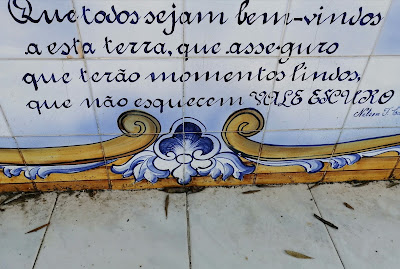 Que todos sejam bem-vindos
a esta terra, que asseguro
que terão momentos lindos,
que não esquecem VALE ESCURO